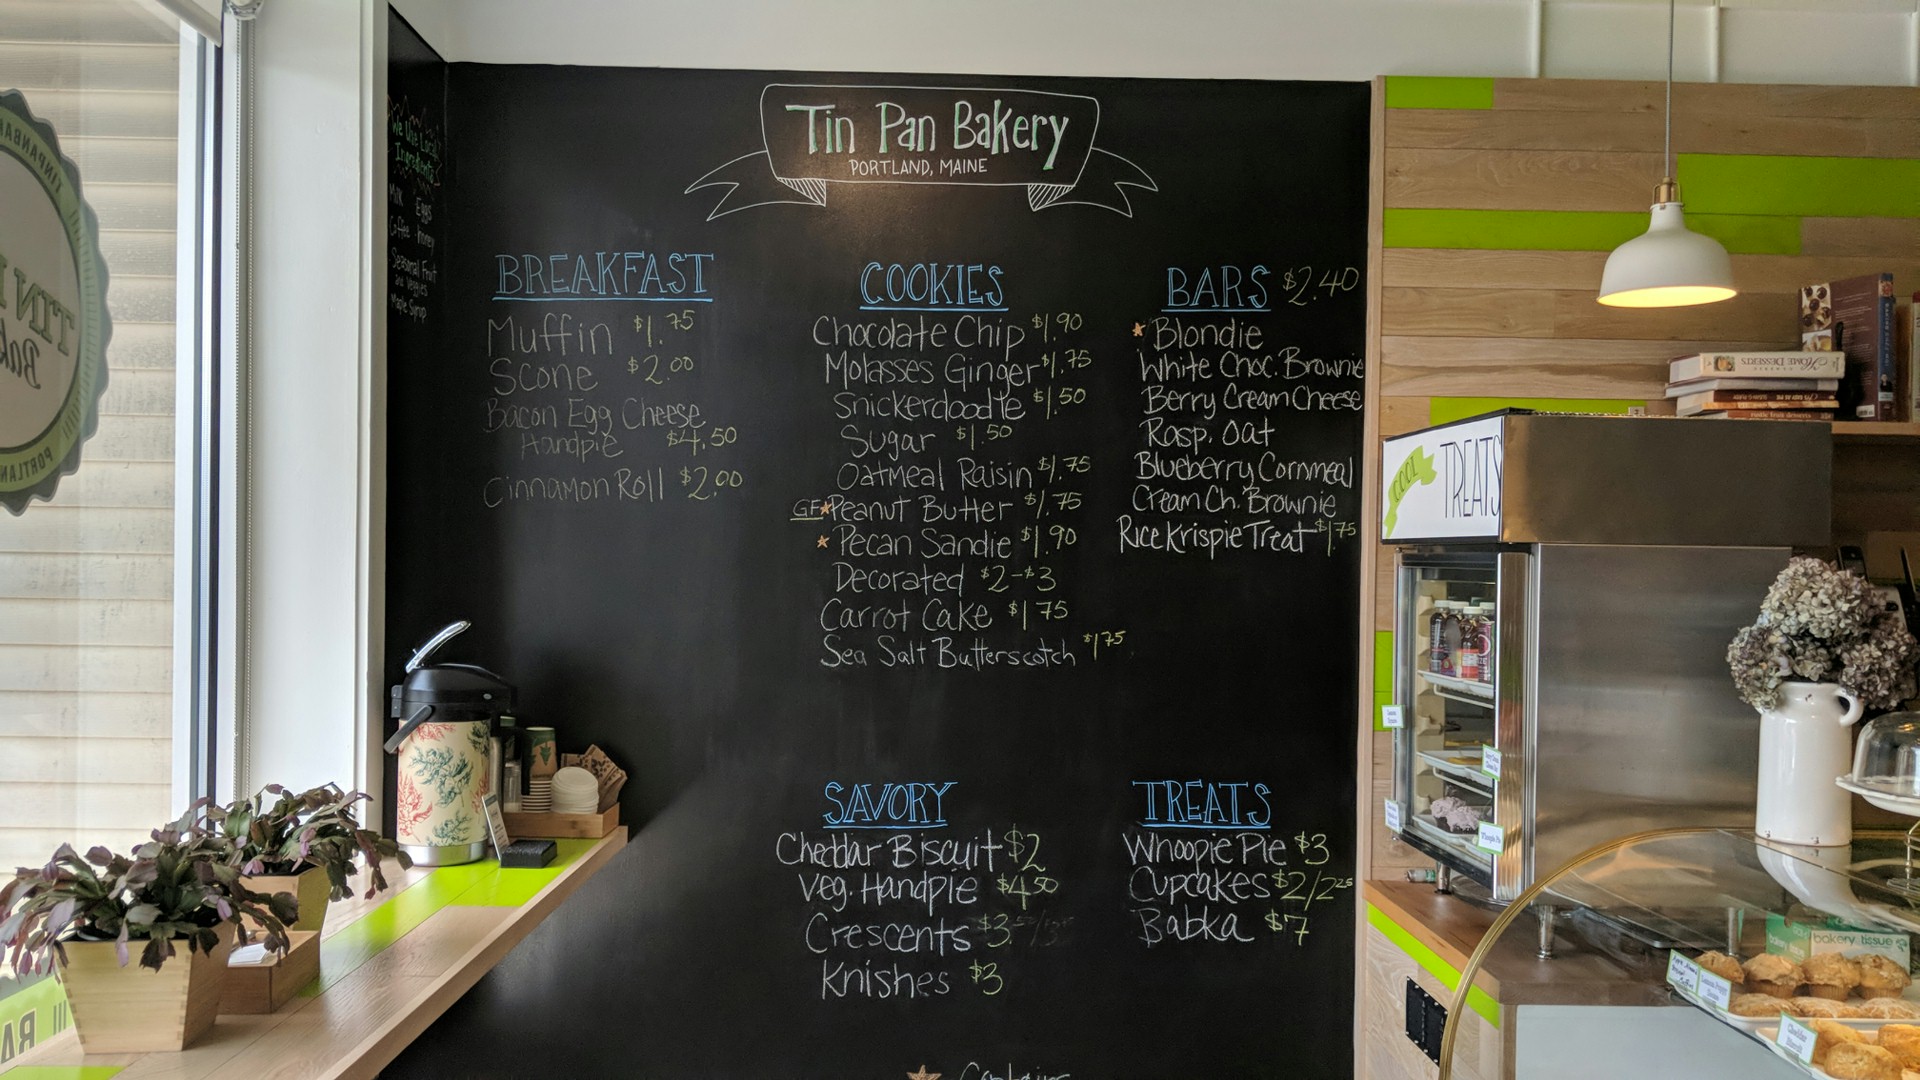 Tin Pan Bakery
PORTLAND, MAINE
We Use Local
Ingredients
Milk Eggs
Coffee honey
Seasonal Fruit
and Veggies
Maple Syrup
BREAKFAST
Muffin $1.75
Scone $2.00
Bacon Egg Cheese
Handpie $4.50
Cinnamon Roll $2.00
COOKIES
Chocolate Chip $1.90
Molasses Ginger $1.75
Snickerdoodle $1.50
Sugar $1.50
Oatmeal Raisin $1.75
GF Peanut Butter $1.75
Pecan Sandie $1.90
Decorated $2-$3
Carrot Cake $1 75
Sea Salt Butterscotch $1 75
BARS $2.40
Blondie
White Choc. Brownie
Berry Cream Cheese
Rasp. Oat
Blueberry Cornmeal
Cream Ch. Brownie
Rice Krispie Treat $1.75
SAVORY
Cheddar Biscuit $2
Veg. Handpie $4.50
Crescents $3.
Knishes $3
TREATS
Whoopie Pie $3
Cupcakes $2/2.25
Babka $7
Contains
COOL TREATS
HOME DESSERTS
bakery tissue
TIN
PORTLAN